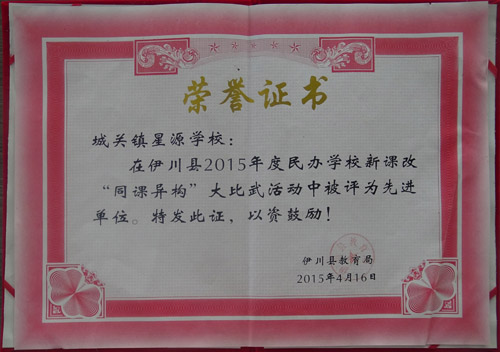 荣誉证书
城关镇星源学校：
在伊川县2015年度民办学校新课改
“同课异构”大比武活动中被评为先进
单位。特发此证，以资鼓励！
伊川县教育局
2015年4月16日